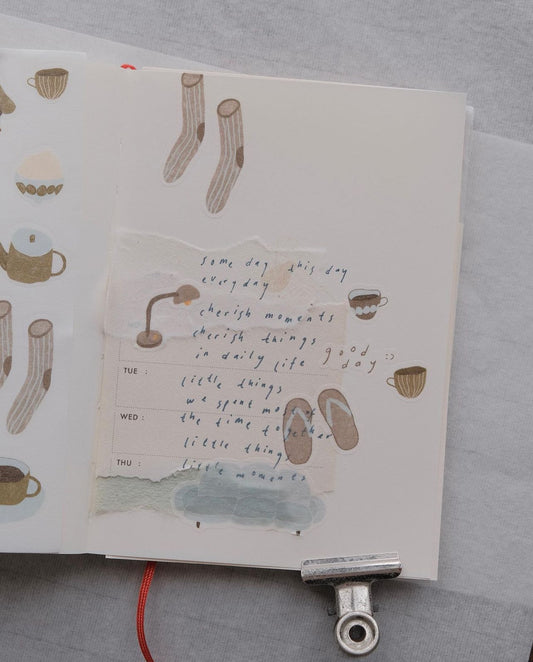 some day this day
everyday
cherish moments
cherish things
in daily life good
day :)
TUE :
little things
we spent most of
WED :
the time together
little things
THU :
little moments